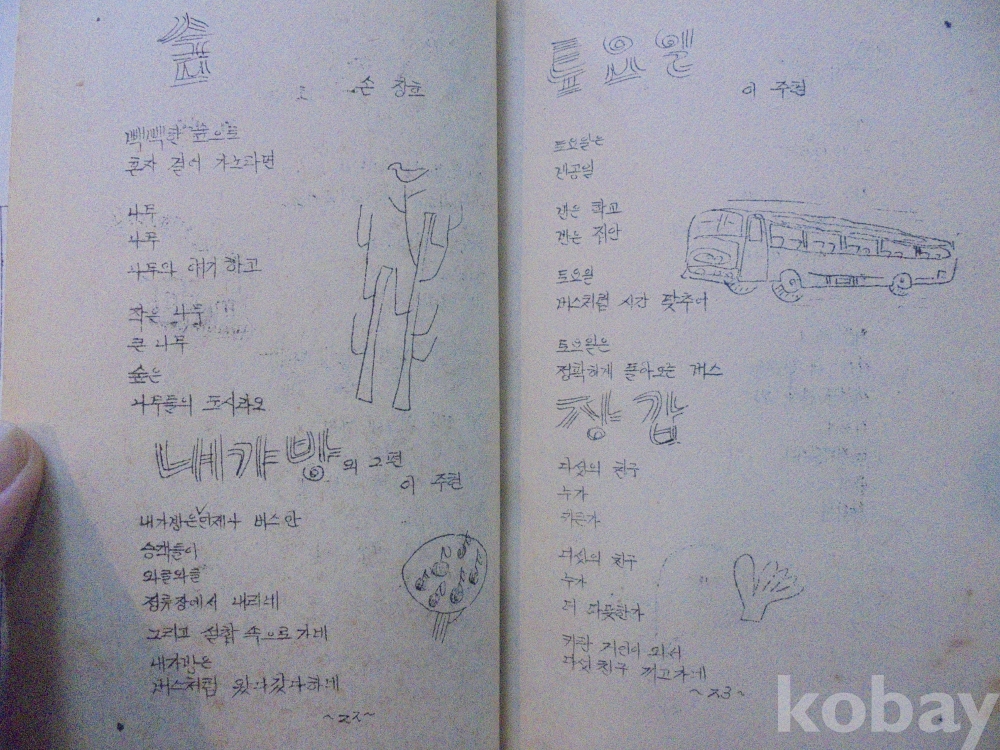 숲
손 창호
빽빽한 숲으로
혼자 걸어 가노라면
나무
나무
나무와 얘기 하고
작은 나무
큰 나무
숲은
나무들의 도시라오
내 가 방 외 2편
이 주현
내가방은 언제나 버스 안
승객들이
와글와글
정류장에서 내리네
그리고 설합 속으로 가네
내가방은
버스처럼 왔다갔다하네
~22~
토 요 일
이 주현
토요일은
반공일
반은 학교
반은 집안
토요일
버스처럼 시간 맞추어
토요일은
정확하게 돌아오는 버스
장 갑
다섯의 친구
누가
다섯의 친구
누가
더 따뜻한가
커다란 거인이 와서
다섯 친구 끼고가네
~23~
kobay